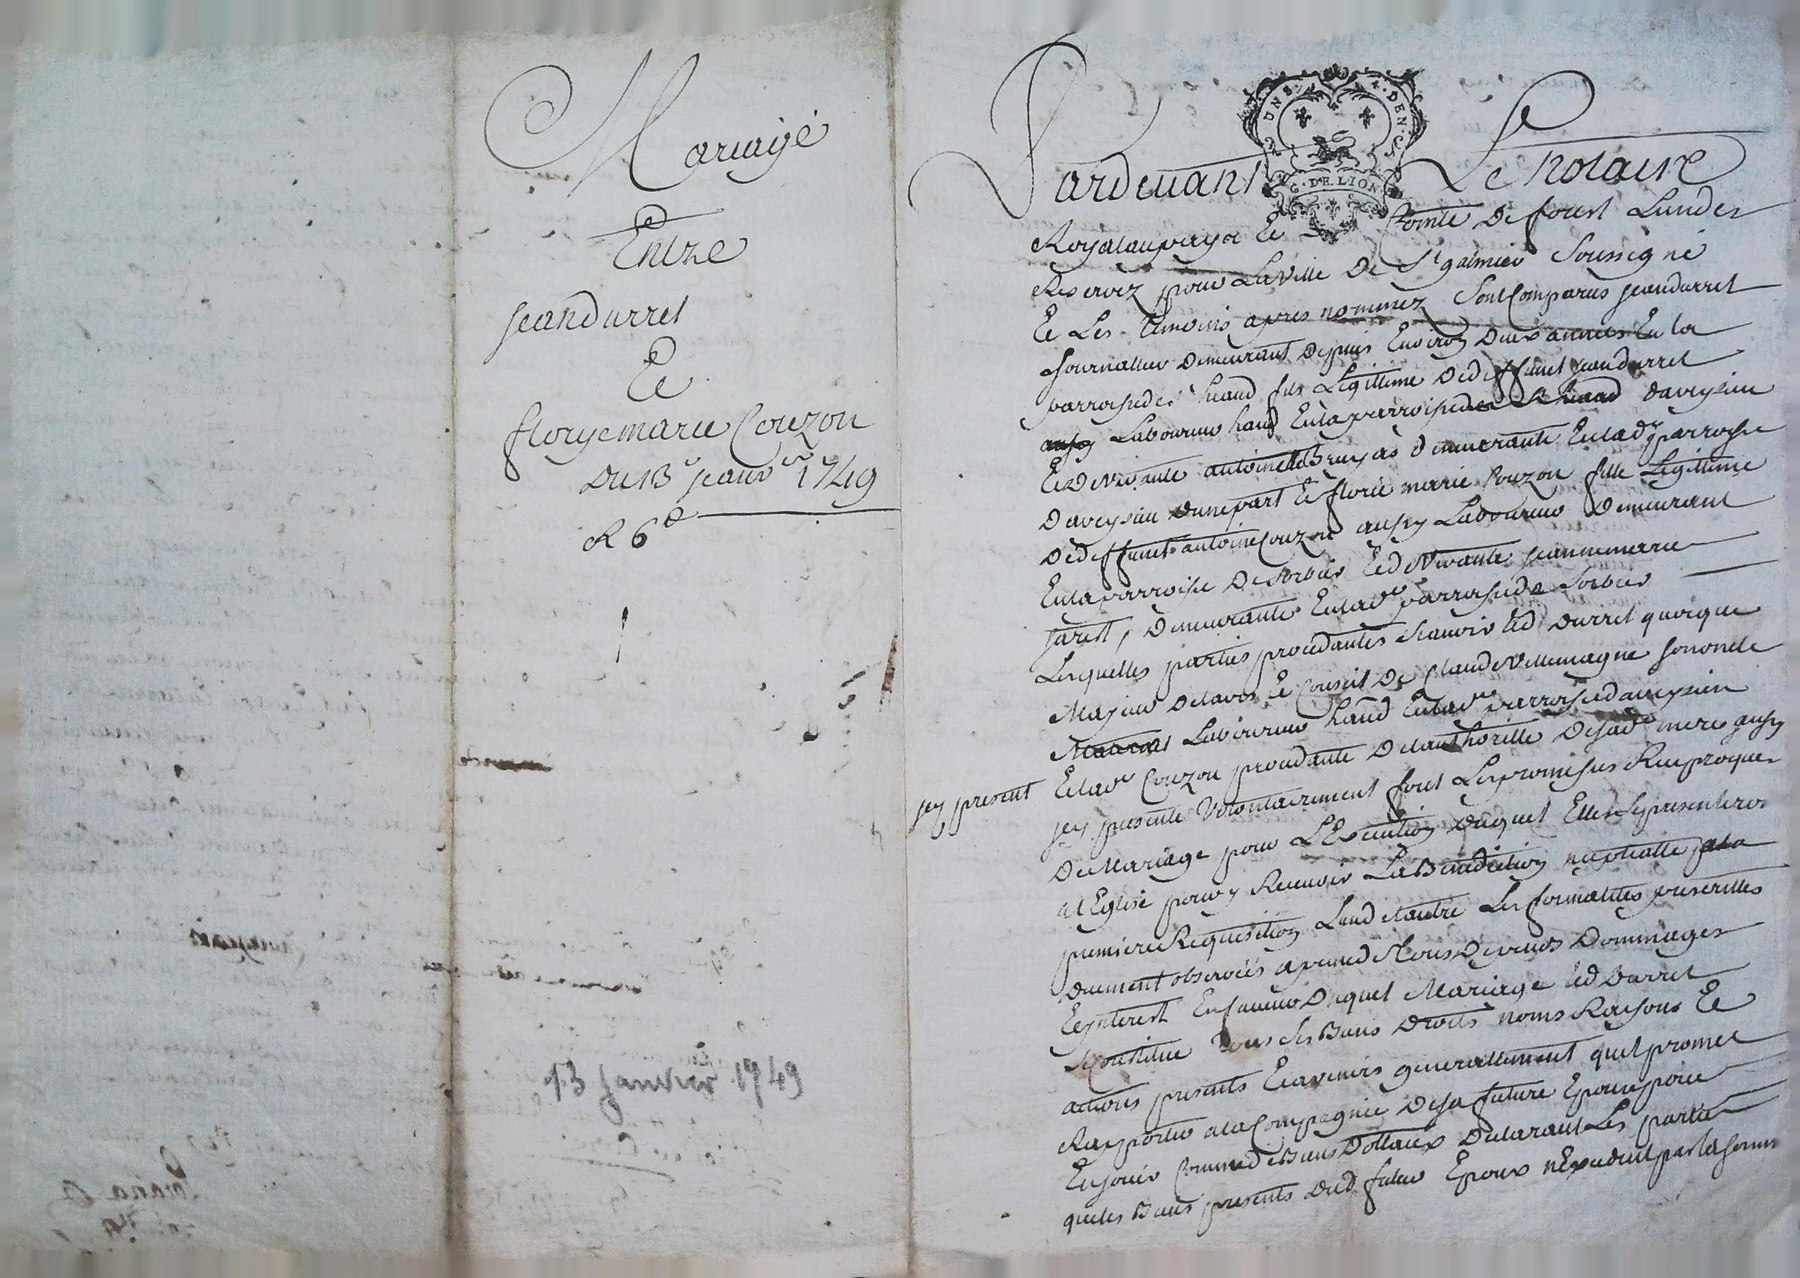 Mariage
Entre
jean durret
Et
florye marie Couzon
Du 13e janvier 1749
R 6d
13 janvier 1749
G. DE LION
Pardevant Le Notaire
Royal au pays et Comté de forest Lun des
Reservez pour La Ville De St galmier Soussigné
Et Les temoins apres nommez Sont Comparus jean durret
journallier demeurant depuis Environ deux années En la
parroisse de St heand fils Legittime de deffunct jean durret
Laboureur hand En la parroisse d'aveysieu
Et De Vivante antoinette Bruyas demeurante En lade parroisse
D'aveysieu dune part Et florie marie Couzon fille Legittime
De deffunct antoine Couzon aussy Laboureur Demeurant
En la parroisse De Sorbier Et de Vivante jeanne marie
jarest, Demeurante En lade parroisse de Sorbier
Lesquelles parties procedantes Scavoir led durret quoique
Majeur De l'avis Et Conseil De Claude Villemagne son oncle
Laboureur hand En lade parroisse d'aveysieu
jcy present Et lade Couzon procedante De l'authorité De sade mere aussy
jcy presente Volontairement font Les promesses Reciproques
De Mariage pour L'Execution Duquel Elles se presenteront
a l'Eglise pour y Recevoir La Benediction nuptialle a la
premiere Requisition Lun de l'autre Les formalités prescrittes
Duement observées a peine de tous Depens Dommages
Et jnterest En faveur Duquel Mariage led Durret
se Constitue tous ses Biens Droits noms Raisons Et
actions presents Et avenirs generallement quil promet
Rapporter a la Compagnie De sa future Epouse pour
En jouir Comme de Biens Dottaux Declarant Les parties
que les Biens presents dud futur Epoux n'Excedent pas la somme